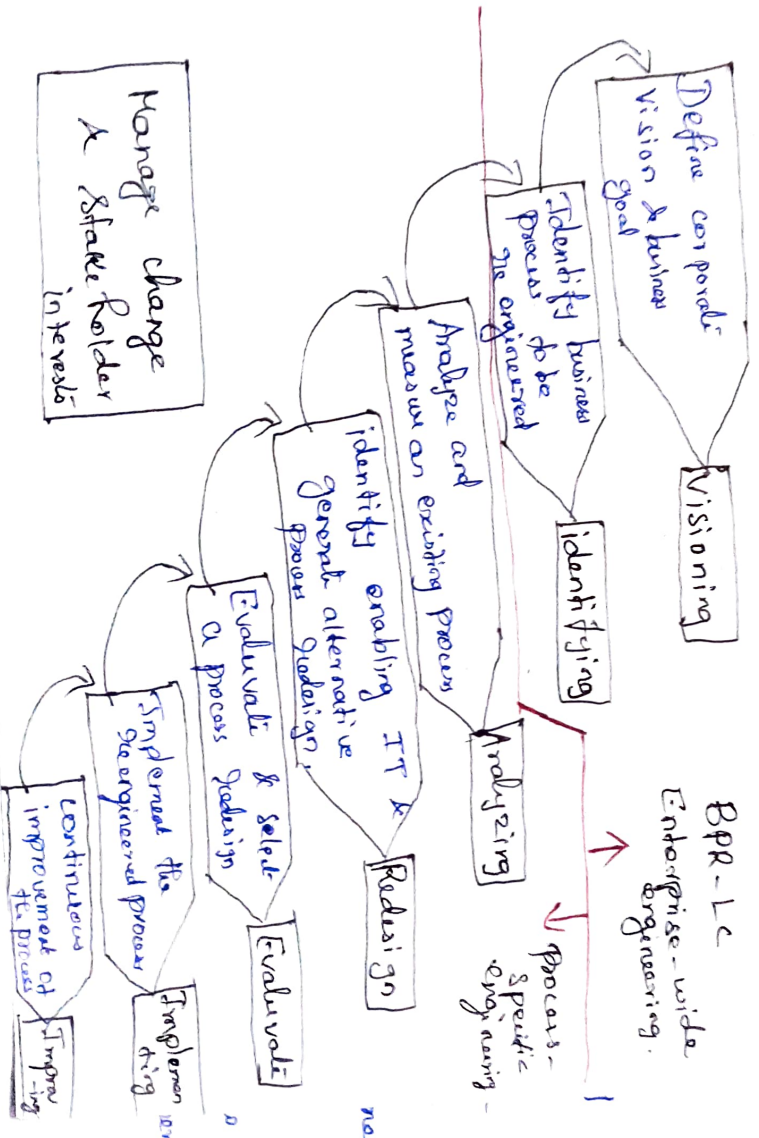 BPR-LC
Enterprise-wide
engineering.
Process-
specific-
engineering-
Define corporati
vision & business
goal
Visioning
Identify business
process to be
re engineered
identifying
Analyze and
measure an existing process
Analyzing
identify enabling IT &
generate alternative
process redesign.
Redesign
Evaluvati & select
a process redesign
Evaluvati
Implement the
re engineered process
Implemen
ting
continuous
improvement of
the process
Improv
-ing
Manage change
& Stakeholder
interests